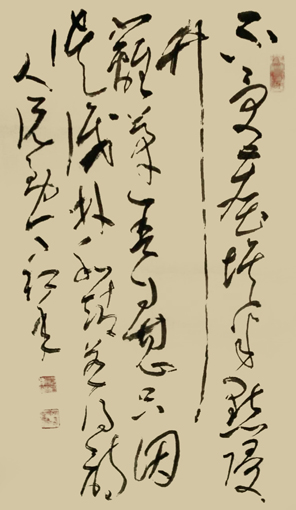 不受塵埃半點侵
竹
籬茅舍自甘心只因
誤識林和靖惹得詩
人說到今